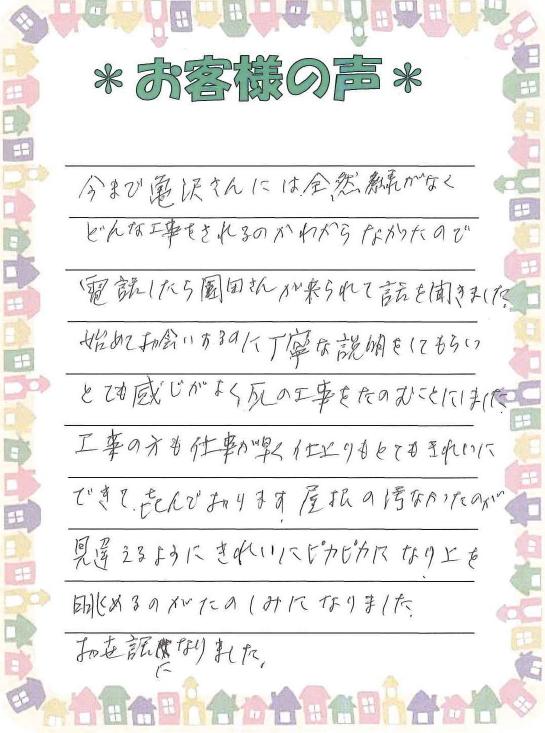 ＊お客様の声＊
今まで亀沢さんには全然縁がなく
どんな工事をされるのかわからなかったので
電話したら園田さんが来られて話を聞きました
始めてお会いするのに丁寧な説明をしてもらい
とても感じがよく瓦の工事をたのむことにしました
工事の方も仕事が早く仕上りもとてもきれいに
できて、喜んでおります屋根の汚なかったのが
見違えるようにきれいにピカピカになり上を
眺めるのがたのしみになりました
お世話になりました。